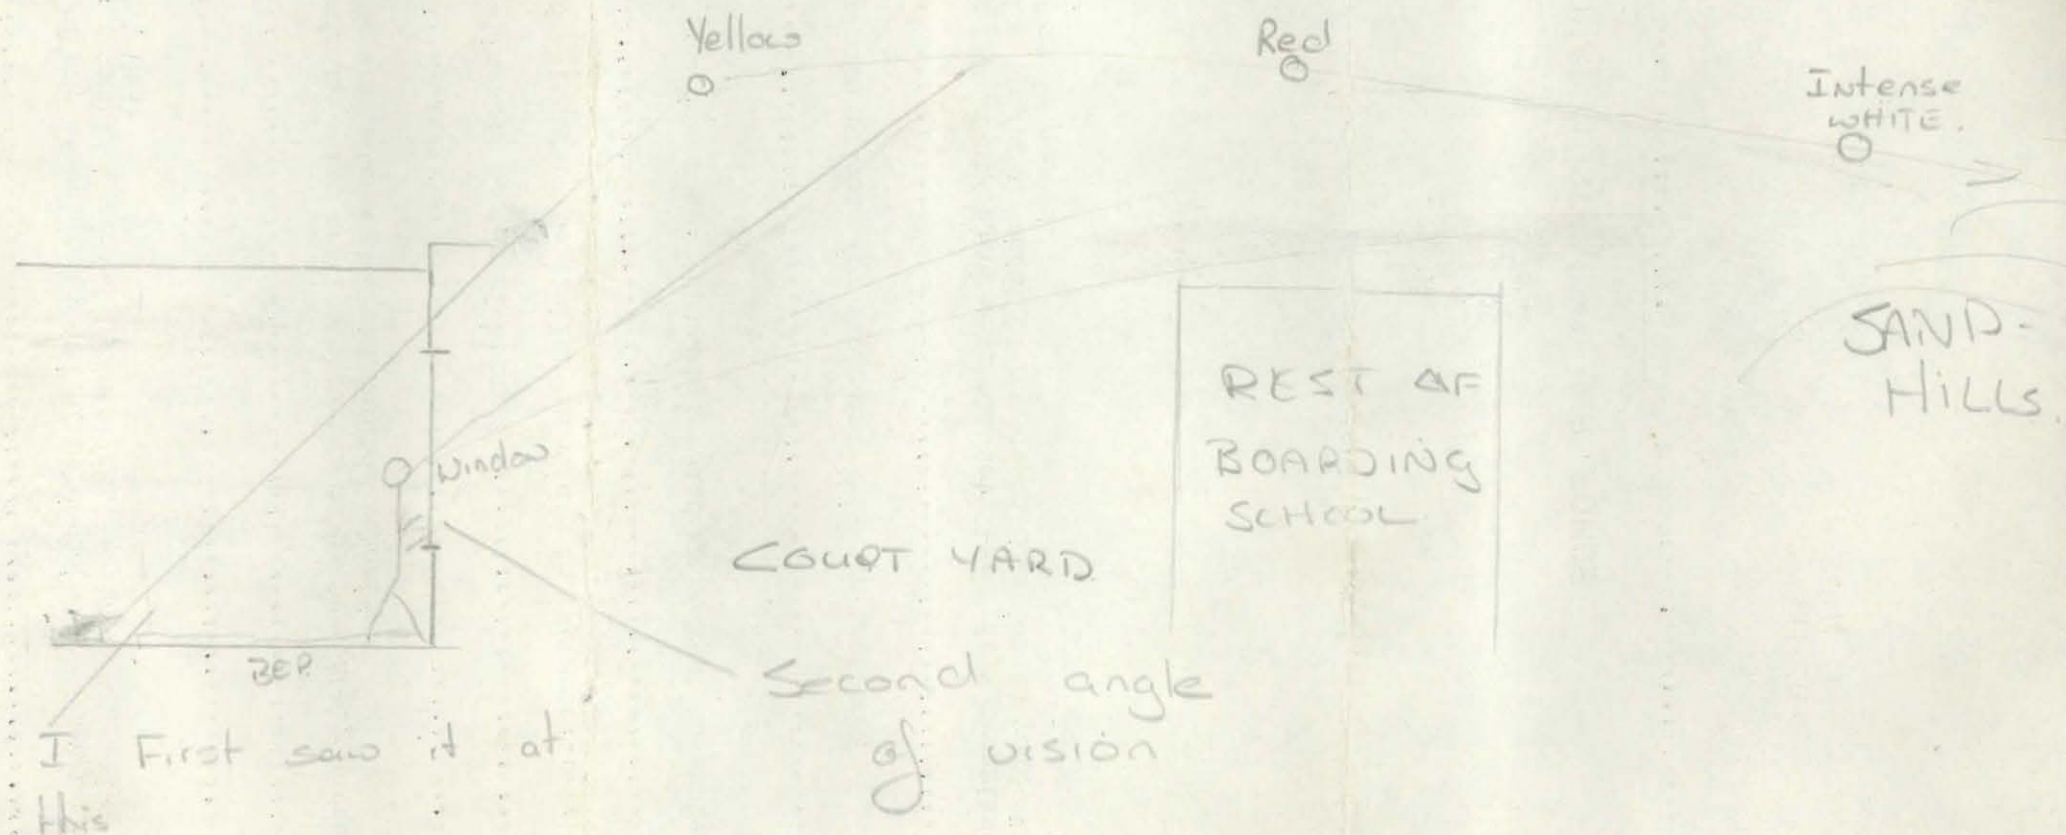 Yellow
Red
Intense
WHITE.
SAND-
HILLS.
REST OF
BOARDING
SCHOOL
Window
COURT YARD
BED
Second angle
of vision
I First saw it at
this